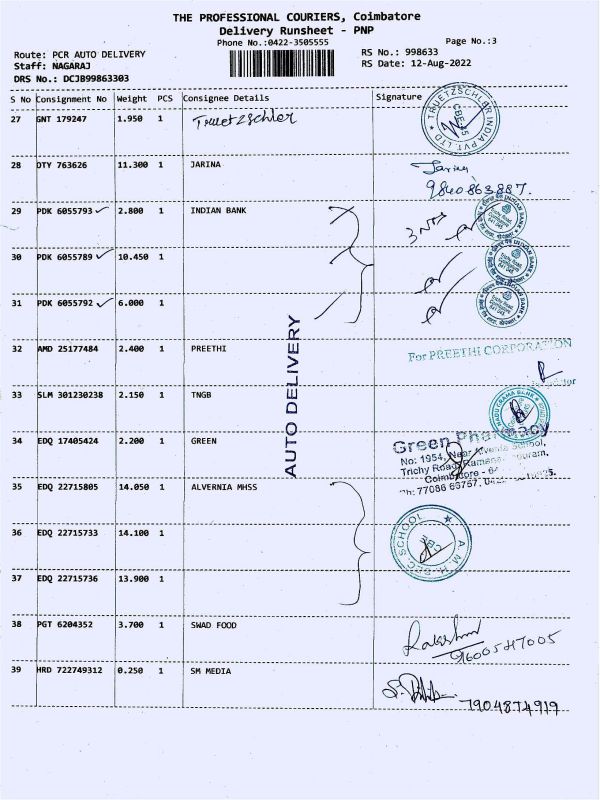 THE PROFESSIONAL COURIERS, Coimbatore
Delivery Runsheet - PNP
Phone No.:0422-3505555
Page No.:3
Route: PCR AUTO DELIVERY
RS No.: 998633
Staff: NAGARAJ
RS Date: 12-Aug-2022
DRS No.: DCJB99863303
S No Consignment No Weight PCS Consignee Details Signature
27 GNT 179247 1.950 1 Truetzschler
TRUETZSCHLER INDIA PVT. LTD
28 DTY 763626 11.300 1 JARINA
Jarina
9840863887.
29 PDK 6055793 2.800 1 INDIAN BANK
INDIAN BANK
30 PDK 6055789 10.450 1
INDIAN BANK
31 PDK 6055792 6.000 1
INDIAN BANK
AUTO DELIVERY
32 AMD 25177484 2.400 1 PREETHI
For PREETHI CORPORATION
33 SLM 301230238 2.150 1 TNGB
34 EDQ 17405424 2.200 1 GREEN
Green Pharmacy
No: 1954, Near School,
Trichy Road,
Coimbatore
Ph: 77086
35 EDQ 22715805 14.050 1 ALVERNIA MHSS
36 EDQ 22715733 14.100 1
A. M. H. SEC. SCHOOL
37 EDQ 22715736 13.900 1
38 PGT 6204352 3.700 1 SWAD FOOD
9600547005
39 HRD 722749312 0.250 1 SM MEDIA
7904874919